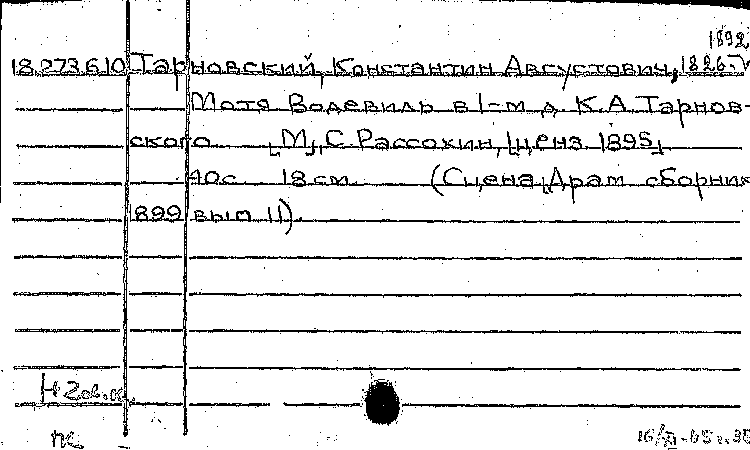 1892
18.273.610 Тарновский, Константин Августович, 1826-
Мотя Водевиль в 1-м д. К.А.Тарнов-
ского [М], С. Рассохин, [ценз 1895]
40с 18см (Сцена Драм сборник
1899 вып 11).